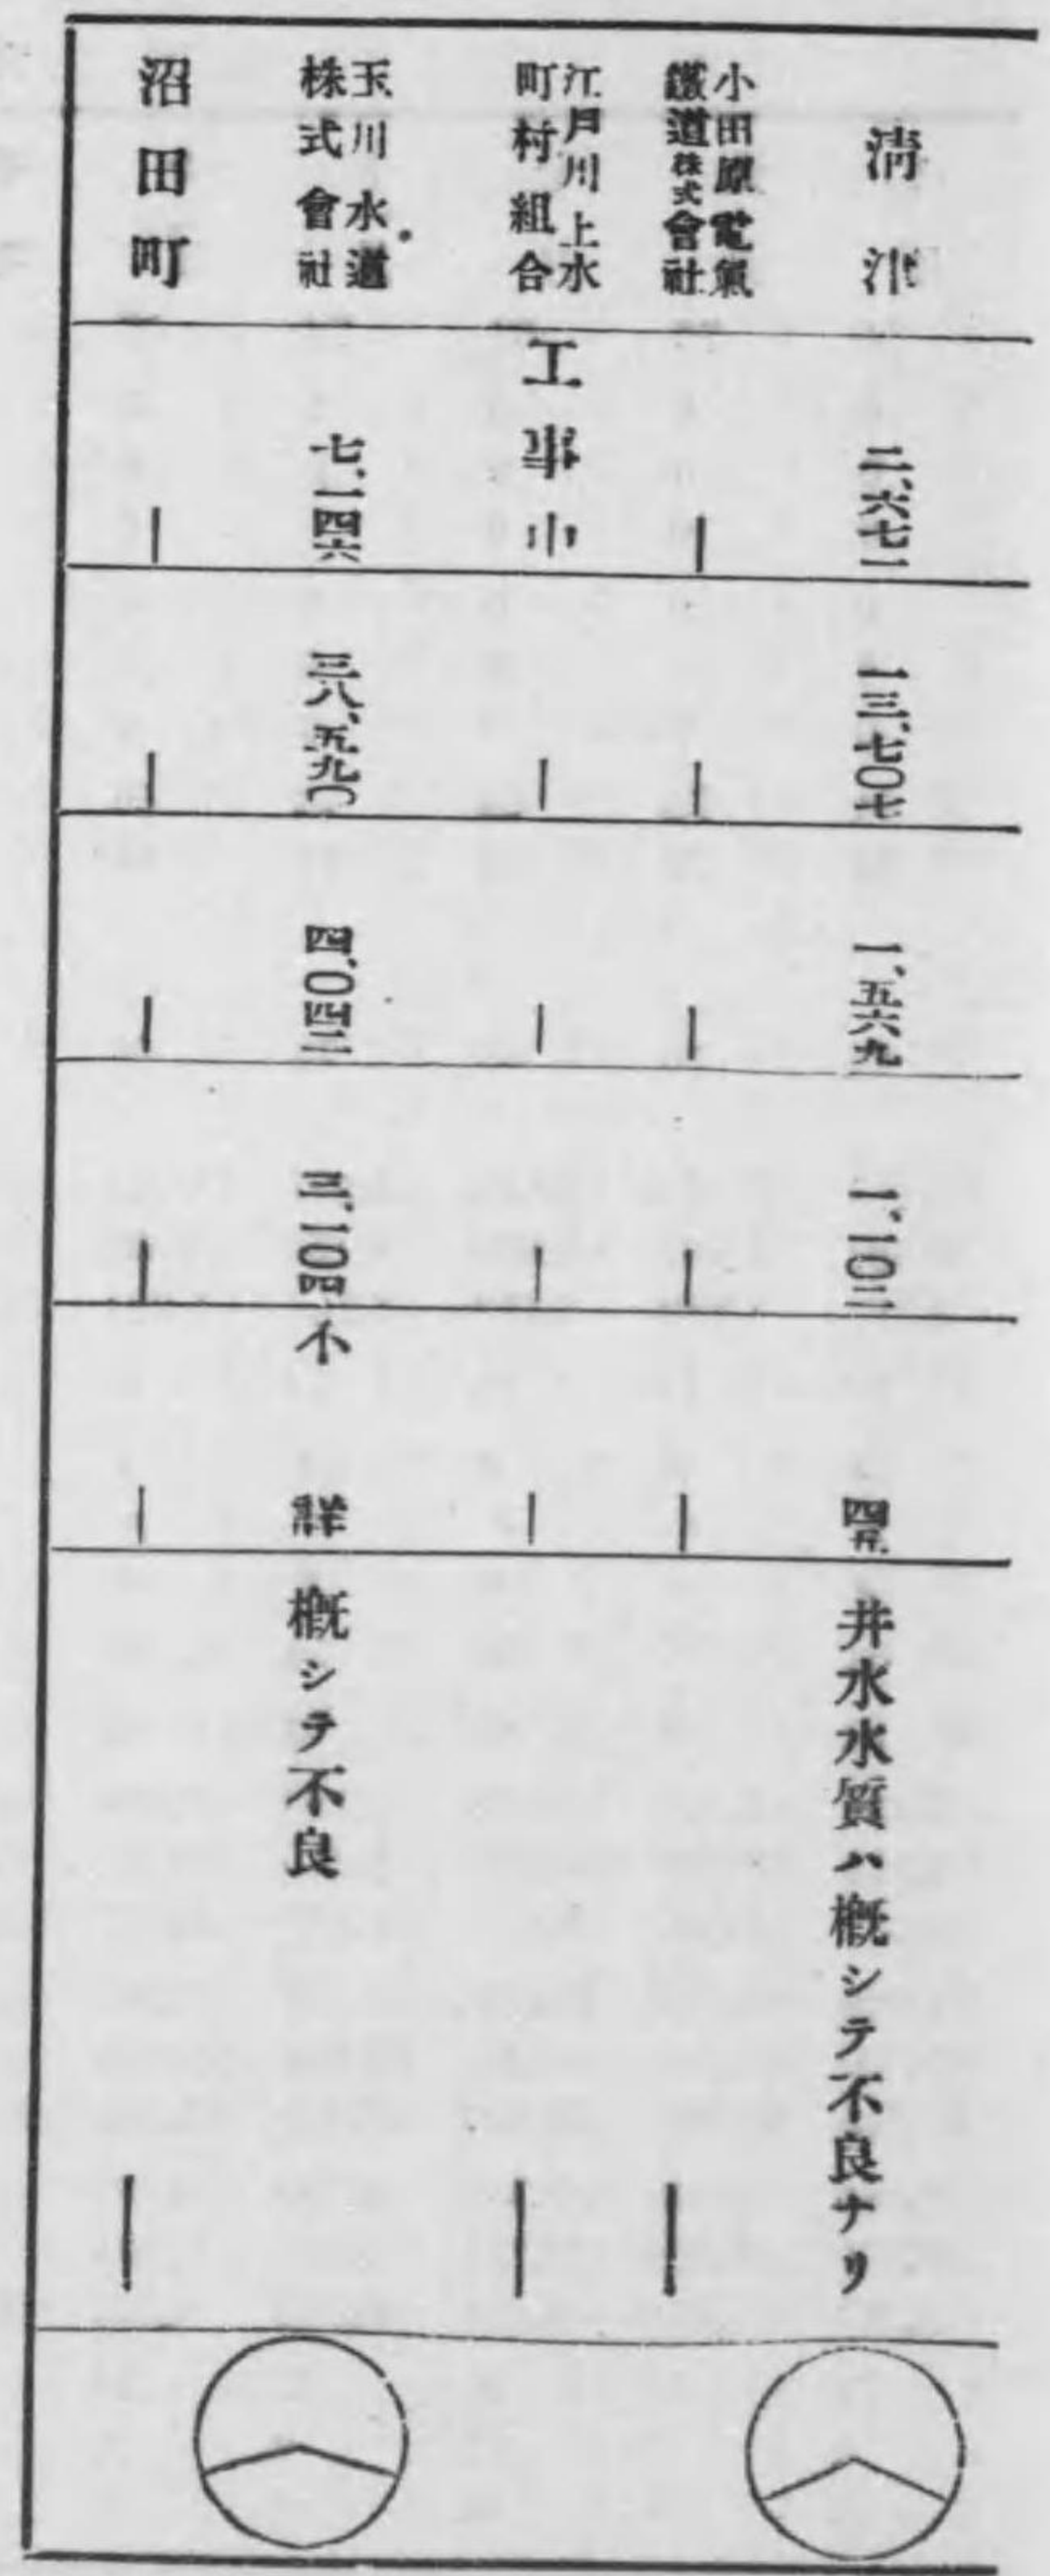 清津
二、六七一
一三、七〇七
一、五六九
一、一〇二
四五
井水水質ハ槪シテ不良ナリ
小田原電氣
鐵道株式會社
—
—
—
—
—
—
江戸川上水
町村組合
工事中
—
—
—
—
—
玉川水道
株式會社
七、一四六
三八、五九〇
四、〇四二
三、一〇四
不詳
槪シテ不良
沼田町
—
—
—
—
—
—